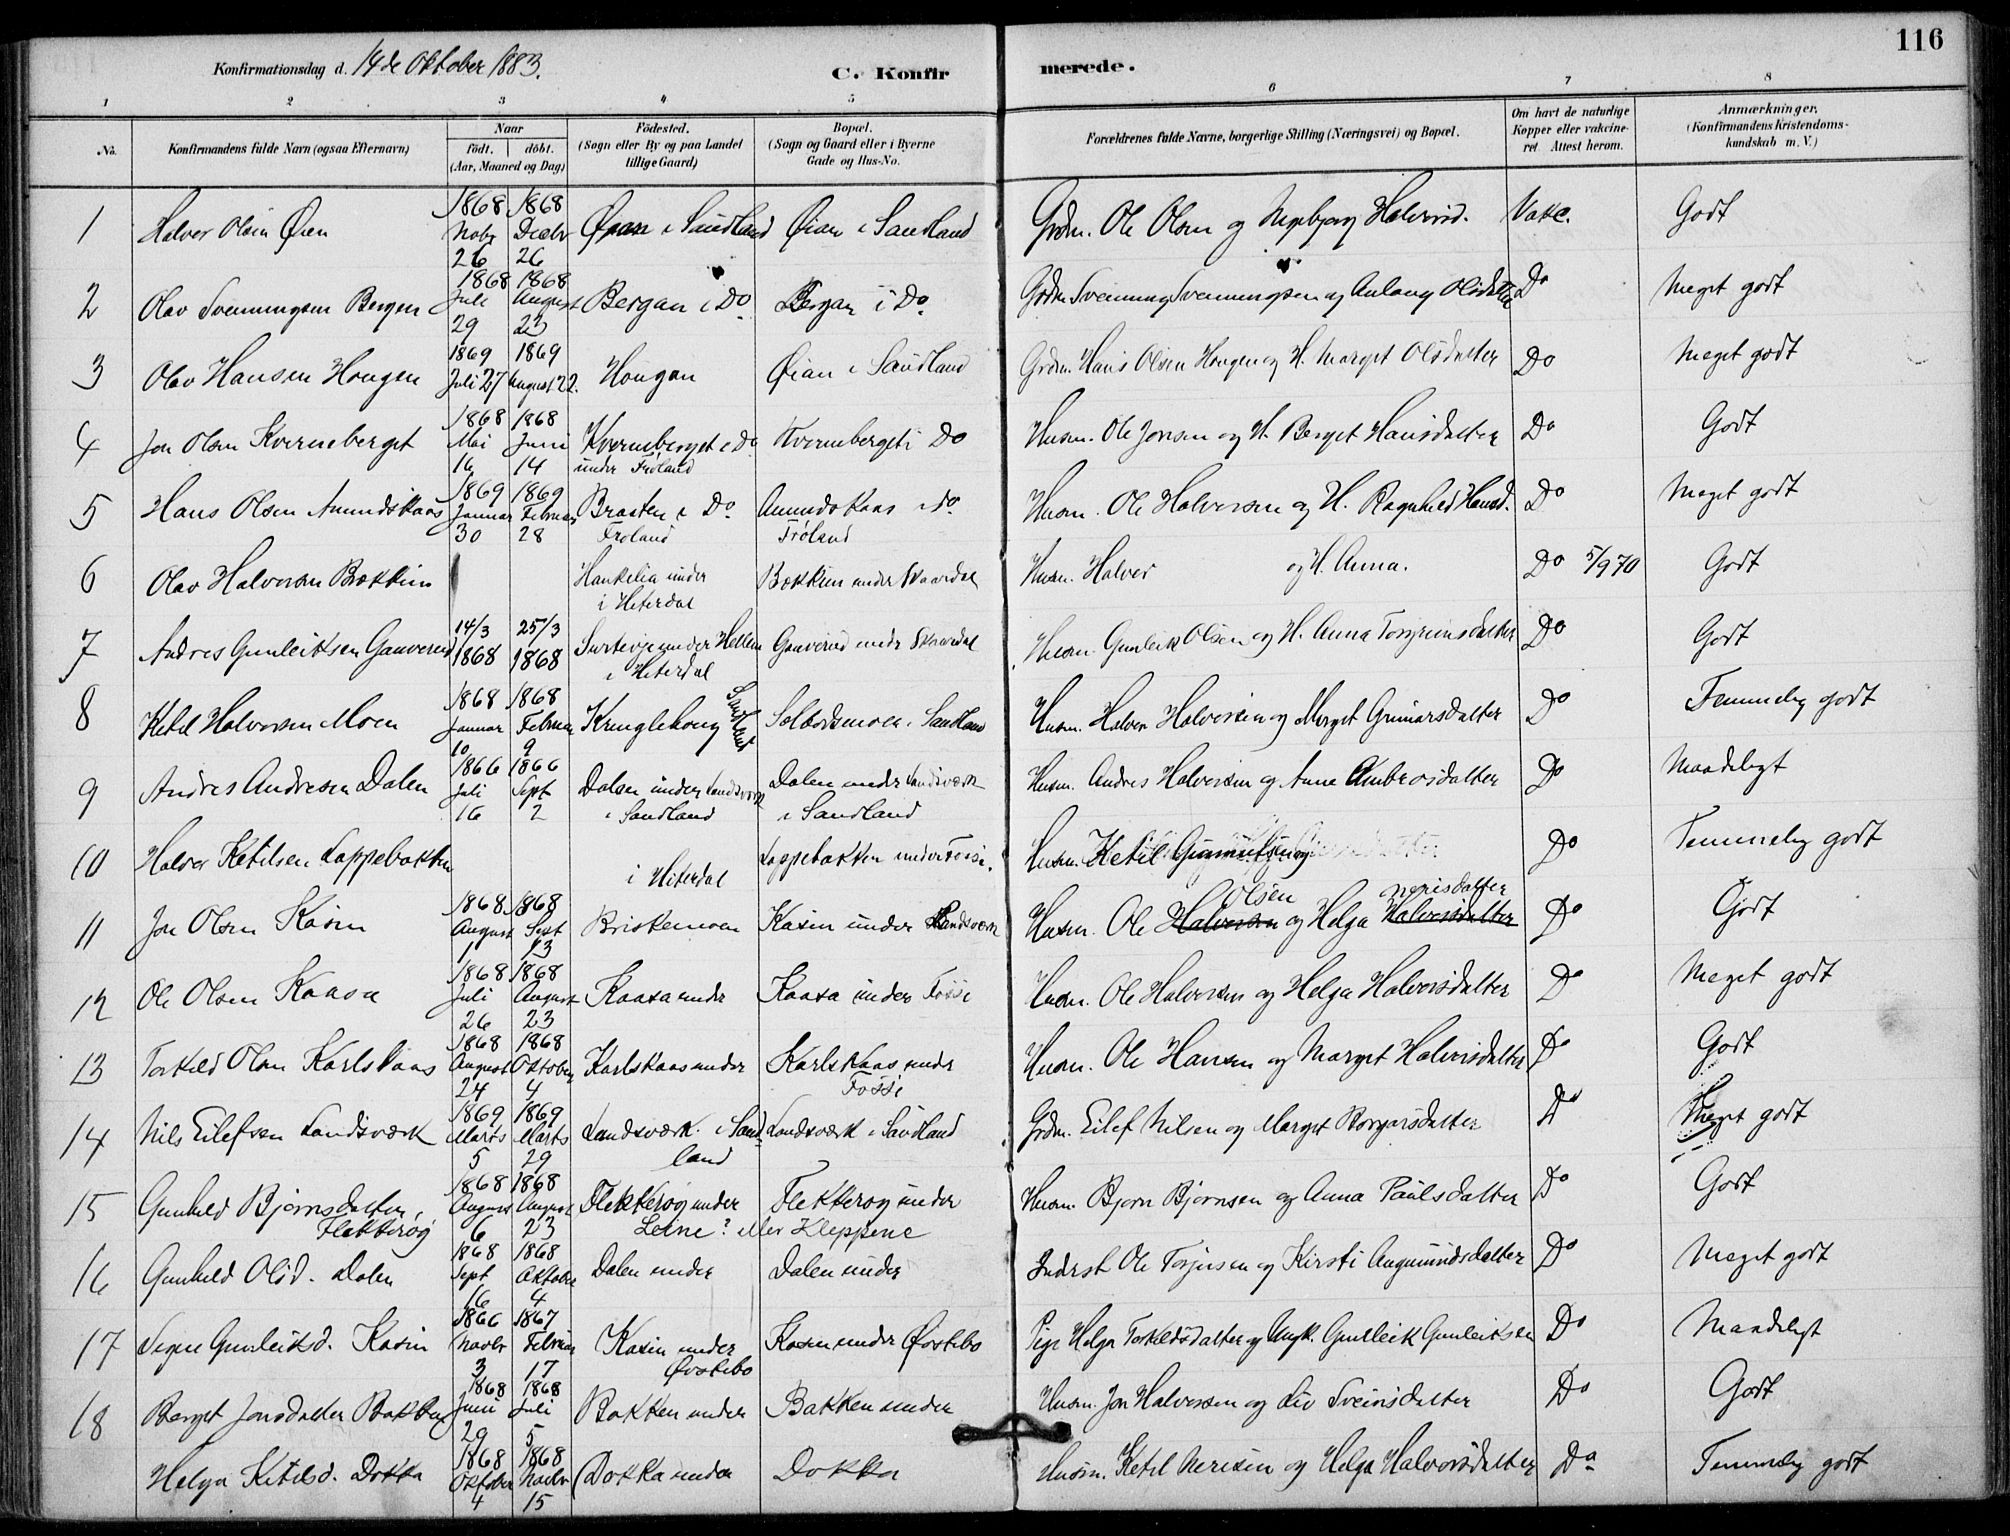 116
Konfirmationsdag d. 14de Oktober 1883.
C. Konfirmerede.
1 2 3 4 5 6 7 8
No. Konfirmandens fulde Navn (ogsaa Efternavn) Naar født. døbt. (Aar, Maaned og Dag) Fødested. (Sogn eller By og paa Landet tillige Gaard) Bopæl. (Sogn og Gaard eller i Byerne Gade og Hus-No. Forældrenes fulde Navne, borgerlige Stilling (Næringsvei) og Bopæl. Om havt de naturlige Kopper eller vakcineret. Attest herom. Anmærkninger. (Konfirmandens Kristendomskundskab m. V.)
1 Halvor Olsen Øien 1868 Novbr 26 1868 Decbr 26 Øian i Saudland Øian i Saudland Grdm. Ole Olsen og Ingebjørg Halvorsd. Vakc. Godt
2 Olav Svenningsen Bergen 1868 Juli 29 1868 August 23 Bergan i Do Bergan i Do. Grdm. Svenning Svenningsen og Aslaug Olsdatter Do Meget godt
3 Olav Hansen Hougen 1869 Juli 27 1869 August 22. Hougan Øian i Saudland Grdm. Hans Olsen Hougen og H. Marget Olsdatter Do Meget godt
4 Jon Olsen Kverneberget 1868 Mai 16 1868 Juni 14 Kverneberget i Do under Frøland Kverneberget i Do Husm. Ole Jonsen og H. Berget Hansdatter Do Godt
5 Hans Olsen Amundskaas 1869 Januar 30 1869 Februar 28 Braaten i Do. Frøland Amundskaas i Do. Frøland Husm. Ole Halvorsen og H. Ragnhild Hansd. Do Meget godt
6 Olav Halvorsen Bækkin Haukelia under i Hiterdal Bækkin under Skaardal Husm. Halvor og H. Anna. Do 5/9 70 Godt
7 Andres Gunleiksen Gauverud 14/3 1868 25/3 1868 under i Hiterdal Gauverud under Skaardal Husm. Gunleik Olsen og H. Anna Torgrimsdatter Do Godt
8 Ketil Halvorsen Moen 1868 Januar 10 1868 Februar 9 Kringlehoug Saudland i Saudland Husm. Halvor Halvorsen og Marget Gunnarsdatter Do Temmelig godt
9 Andres Andresen Dalen 1866 Juli 16 1866 Sept 2 Dalen under Landsværk i Saudland Dalen under Landsværk i Saudland Husm. Andres Halvorsen og Anne Ambrosdatter Do Maadeligt
10 Halvor Ketilsen Loppebakken i Hiterdal Loppebakken under Fossi. Husm. Ketil og Do Temmelig godt
11 Jon Olsen Kasin 1868 August 1 1868 Sept 13 Briskemoen Kasin under Landsværk Husm. Ole Halvorsen Olsen og Helga Halvorsdatter Nerisdatter Do Godt
12 Ole Olsen Kaasa 1868 Juli 26 1868 August 23 Kaasa under Kaasa under Fossi Husm. Ole Halvorsen og Helga Halvorsdatter Do Meget godt
13 Torkild Olsen Karlskaas 1868 August 24 1868 Oktober 4 Karlskaas under Karlskaas under Fossi Husm. Ole Hansen og Marget Halvorsdatter Do Godt
14 Nils Eilefsen Landsværk 1869 Marts 5 1869 Marts 29 Landsværk i Saudland Landsværk i Saudland Grdm. Eilef Nilsen og Marget Borgarsdatter Do Meget godt
15 Gunhild Bjørnsdatter, Flekterøg 1868 August 6 1868 August 23 Flekterøg under Leine? eller Kleppene Flekterøg under Husm. Bjørn Bjørnsen og Anna Paulsdatter Do Godt
16 Gunhild Olsd. Dalen 1868 Sept 16 1868 Oktober 4 Dalen under Dalen under Inderst Ole Torjusen og Kirsti Augmundsdatter Do Meget godt
17 Signe Gunleiksd. Kasin 1866 Novbr 3 1867 Februar 17 Kasin under Øvstebø Kasin under Øvstebø Pige Helga Torkildsdatter og Ungk. Gunleik Gunleiksen Do Maadeligt
18 Berget Jonsdatter Bakken 1868 Juni 29 1868 Juli 5 Bakken under Bakken under Husm. Jon Halvorsen og Liv Sveinsdatter Do Godt
Helga Ketilsd. Dokka 1868 Oktober 4 1868 Novbr 15 Dokka under Dokka Husm. Ketil Nerisen og Helga Halvorsdatter Do Temmelig godt